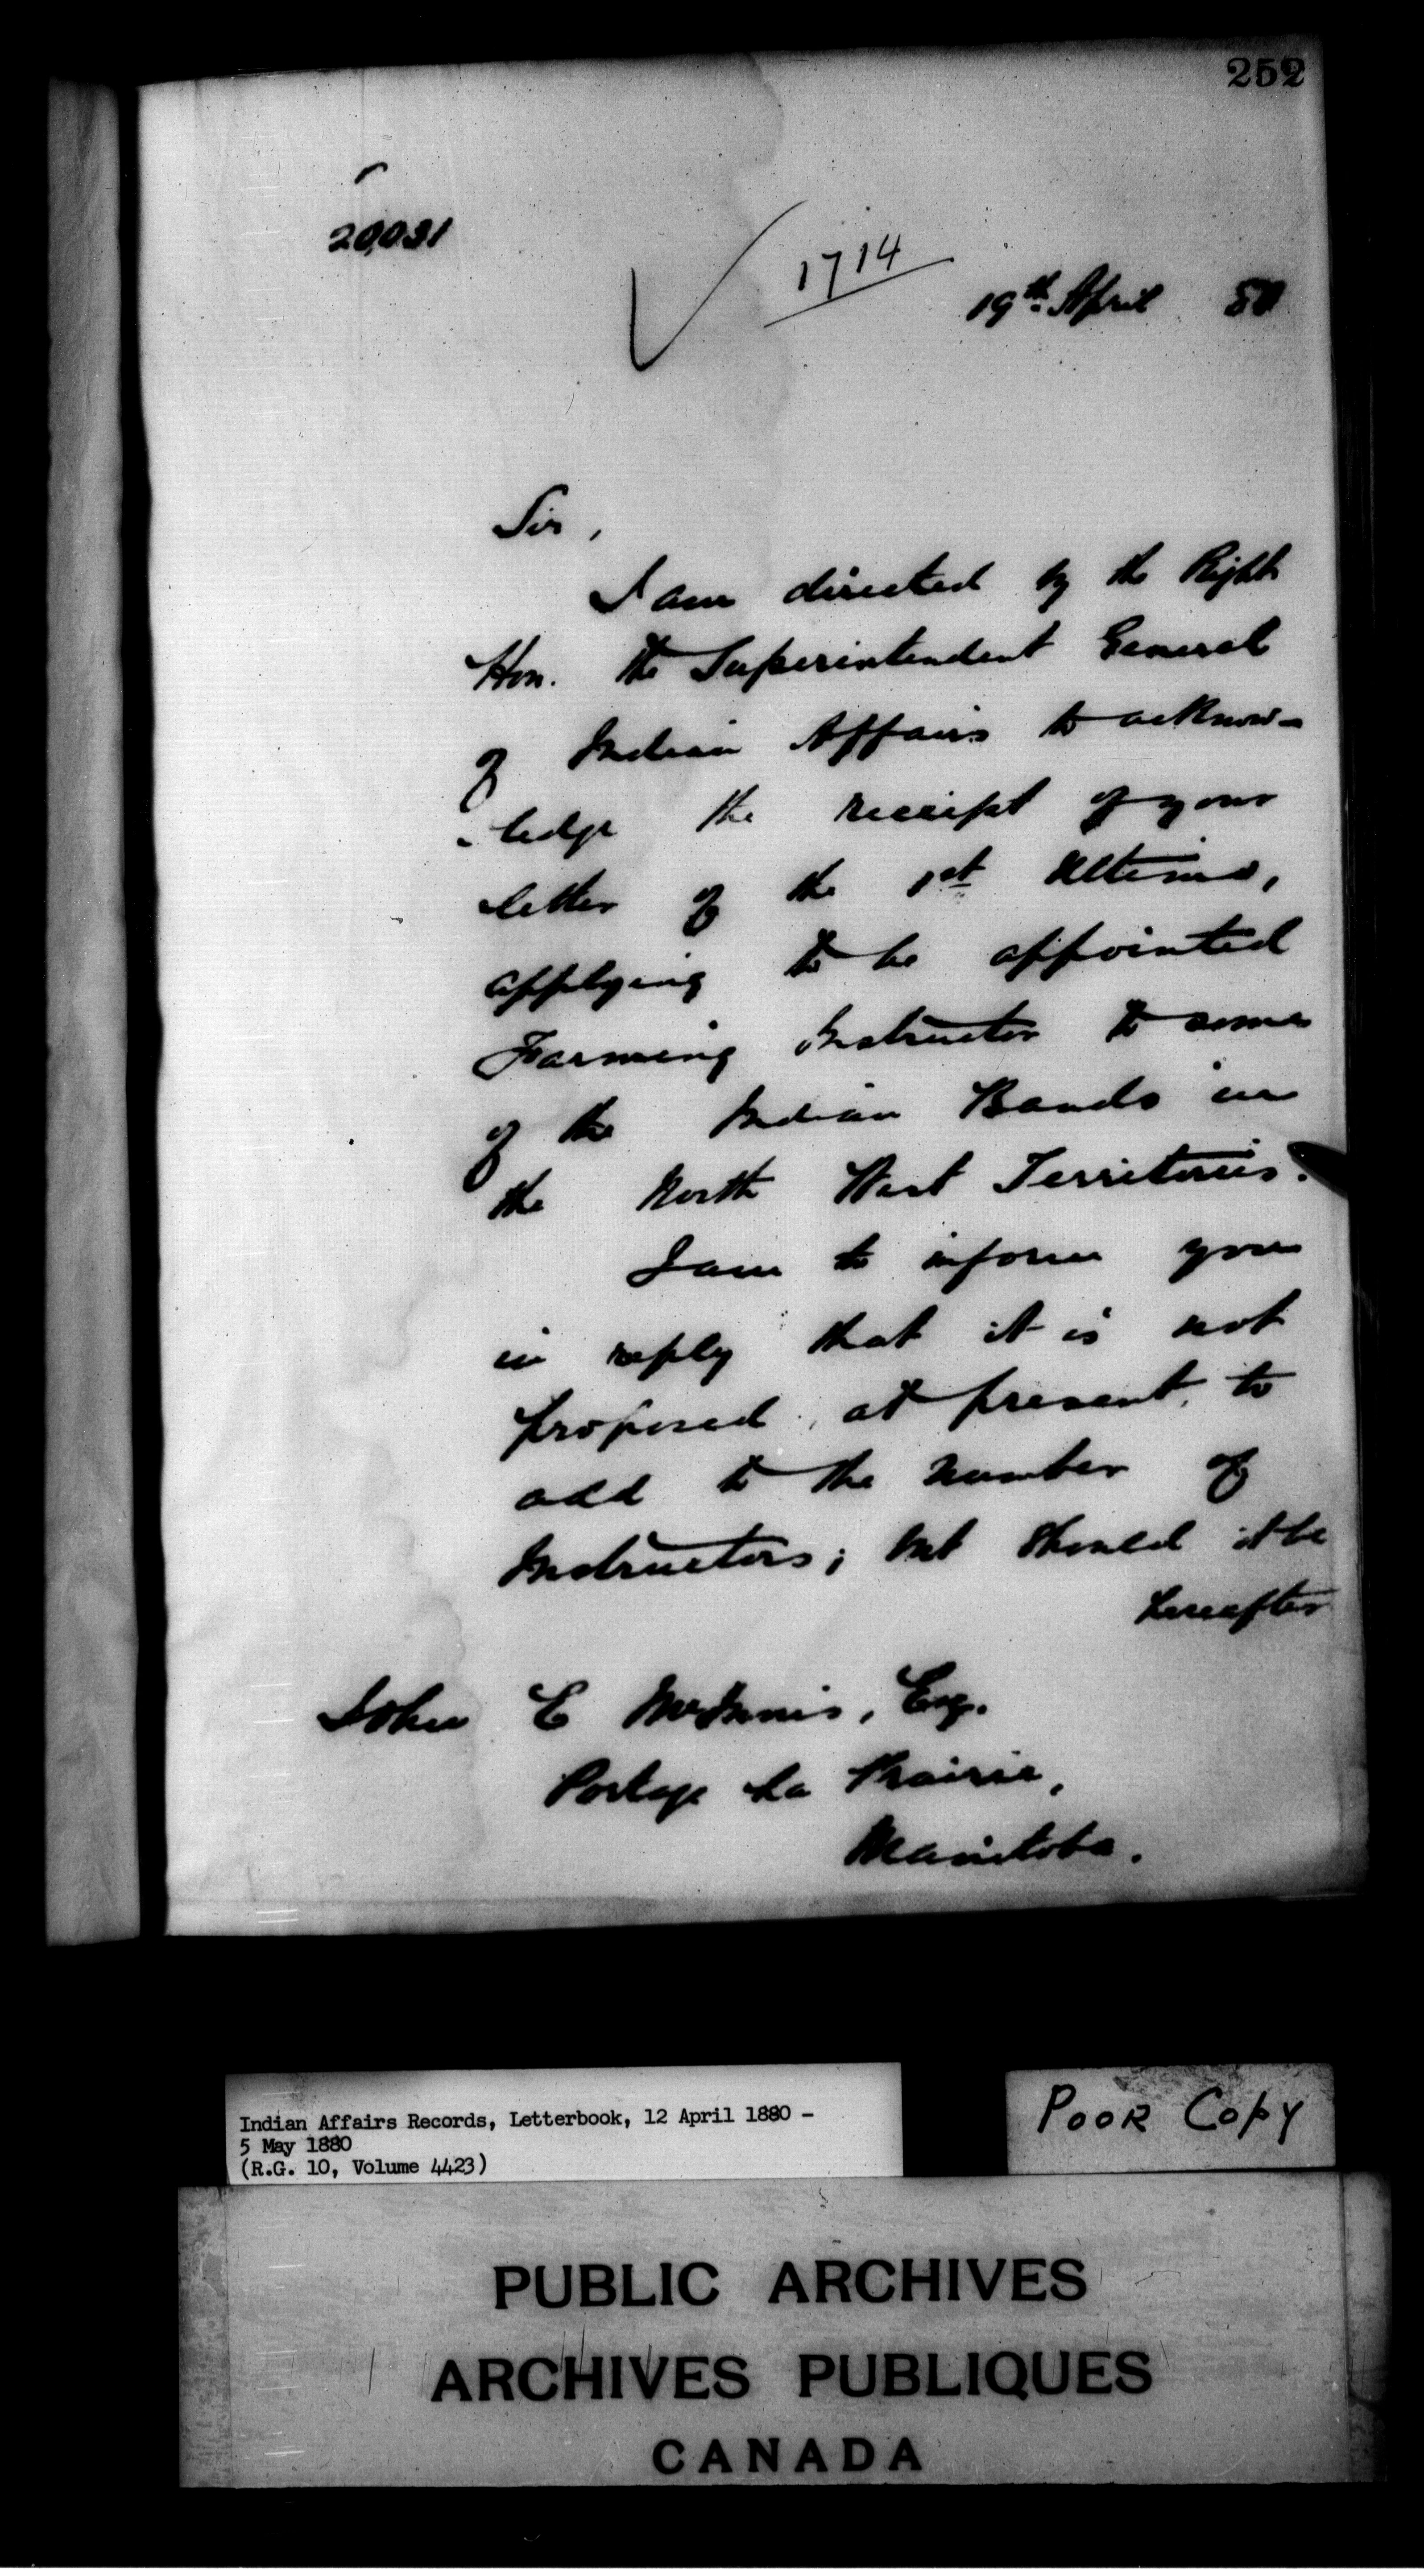 252
20,031
1714
19th April 80
Sir,
I am directed by the Right
Hon. the Superintendent General
of Indian Affairs to acknow-
-ledge the receipt of your
letter of the 1st Ultimo,
applying to be appointed
Farming Instructor to some
of the Indian Bands in
the North West Territories.
I am to inform you
in reply that it is not
proposed, at present, to
add to the number of
Instructors; but should it be
hereafter
John E McInnis, Esq.
Portage La Prairie,
Manitoba.
Indian Affairs Records, Letterbook, 12 April 1880 -
5 May 1880
(R.G. 10, Volume 4423)
POOR COPY
PUBLIC ARCHIVES
ARCHIVES PUBLIQUES
CANADA